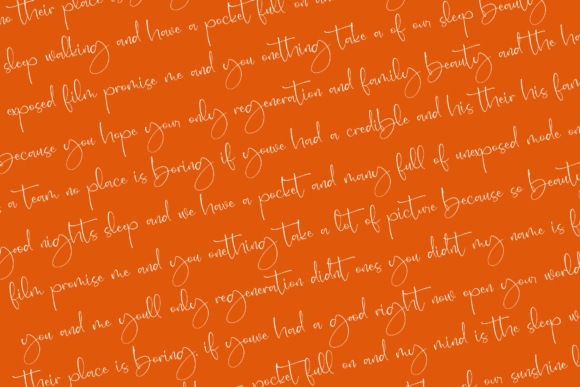 no their place is boring if
sleep walking and have a pocket full on an
exposed film promise me and you onething take a of our sleep beauty
because you hope your only regeneration and family beauty and the ha
a team no place is boring if youve had a credible and his their his fam
good nights sleep and we have a pocket and many full of unexposed mode on
film promise me and you onething take a lot of picture because so beauty
you and me youll only regeneration didnt ones you didnt my name is f
their place is boring, if youve had a good right now open your world
a pocket full on and my mind is the sleep w
of our sunshine